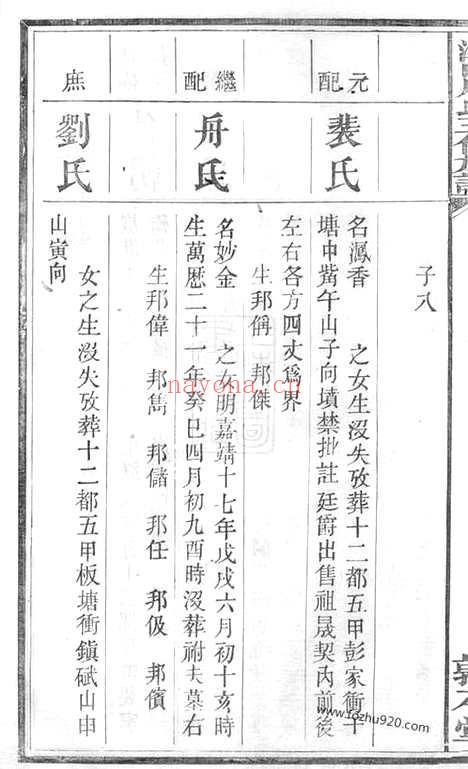 子八
元配
裴氏
名鳳香 之女生沒失攷葬十二都五甲彭家衝十
塘中觜午山子向墳禁批註廷爵出售祖晟契內前後
左右各方四丈爲界
生邦偁 邦傑
繼配
冉氏
名妙金 之女明嘉靖十七年戊戌六月初十亥時
生萬歷二十一年癸巳四月初九酉時沒葬祔夫墓右
生邦偉 邦雋 邦儲 邦任 邦伋 邦儐
庶
劉氏
女之生沒失攷葬十二都五甲板塘衝鎭碔山申
山寅向
nayona.cn
www.fozhu920.com